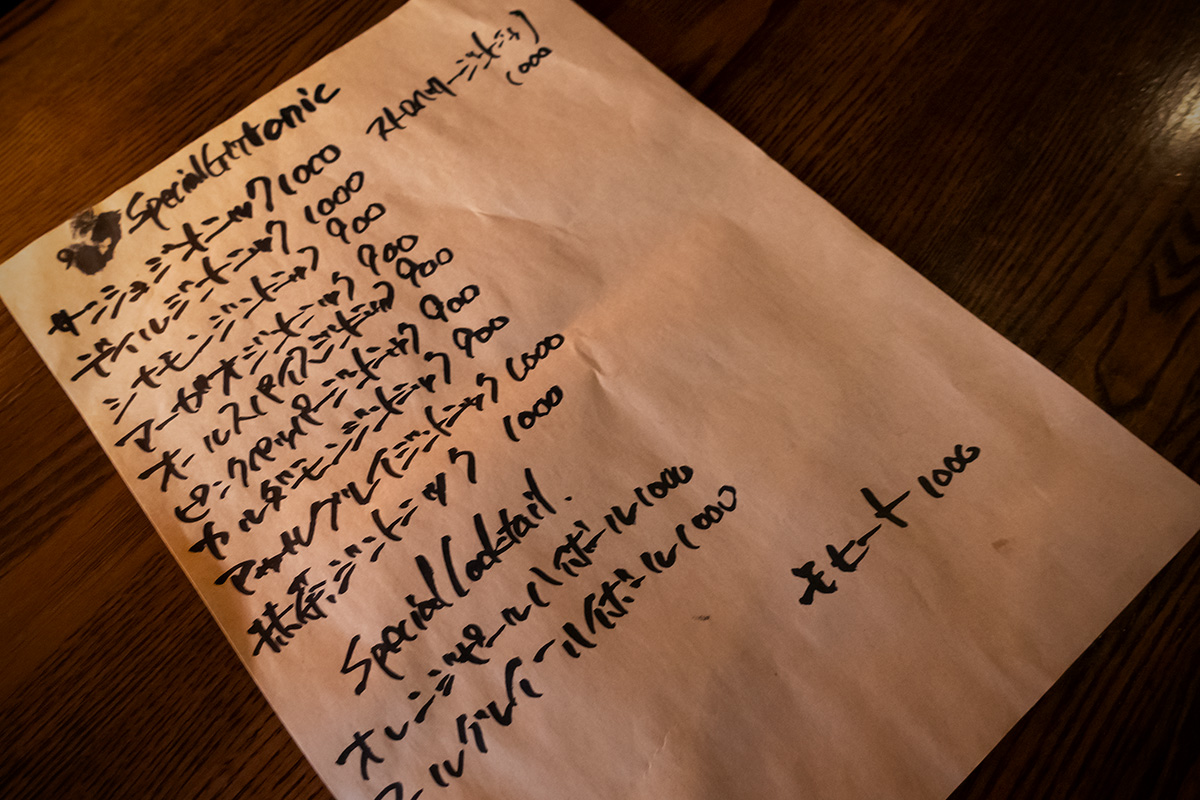 Special Gin tonic
サンショジントニック 1000
ディルジントニック 1000
シナモンジントニック 900
マーガオジントニック 900
オールスパイスジントニック 900
ピンクペッパージントニック 900
カルダモンジントニック 900
アールグレイジントニック 1000
抹茶ジントニック 1000
1000
Special Cocktail.
オレンジピールハイボール 1000
アールグレイハイボール 1000
モヒート 1000